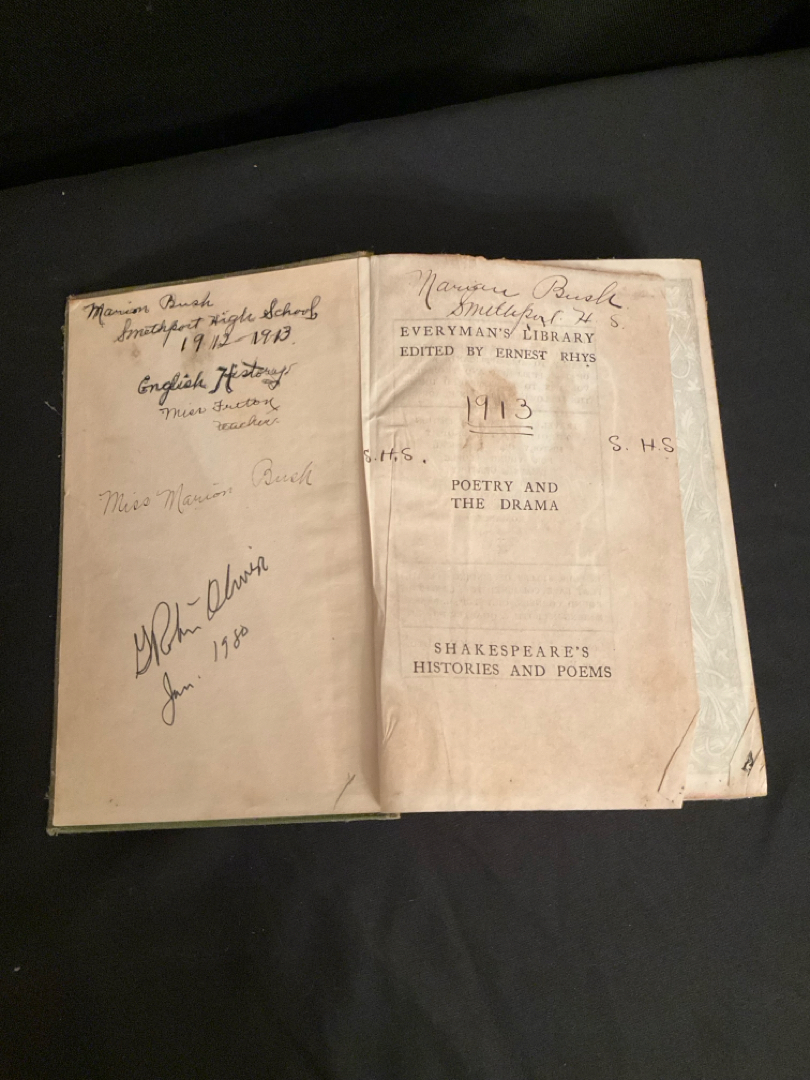 Marion Bush
Smethport High School
1912-1913.
English History
Miss
teacher
Miss Marion Bush
Robin Oliver
Jan. 1980
Marion Bush
Smethport H S.
EVERYMAN'S LIBRARY
EDITED BY ERNEST RHYS
1913
S.H.S.
S. H S
POETRY AND
THE DRAMA
SHAKESPEARE'S
HISTORIES AND POEMS